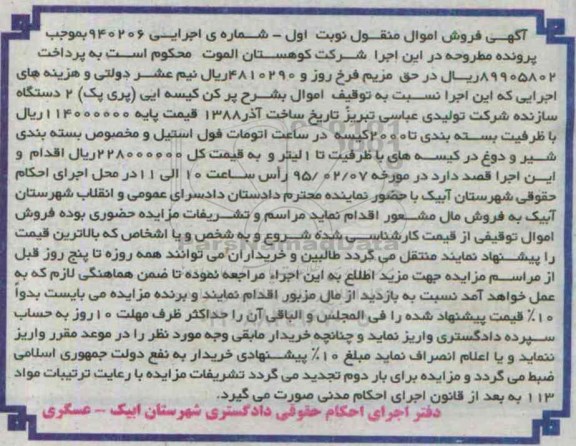 آگهی فروش اموال منقول نوبت اول - شماره ی اجرایی ۹۴۰۲۰۶ بموجب
پرونده مطروحه در این اجرا شرکت کوهستان الموت محکوم است به پرداخت
۸۹۹۰۵۸۰۲ ریال در حق مریم فرخ روز و ۴۸۱۰۲۹۰ ریال نیم عشر دولتی و هزینه های
اجرایی که این اجرا نسبت به توقیف اموال بشرح پر کن کیسه ایی (پری پک) ۲ دستگاه
سازنده شرکت تولیدی عباسی تبریز تاریخ ساخت آذر ۱۳۸۸ قیمت پایه ۱۱۴۰۰۰۰۰۰۰ ریال
با ظرفیت بسته بندی تا ۲۰۰۰ کیسه در ساعت اتومات فول استیل و مخصوص بسته بندی
شیر و دوغ در کیسه های با ظرفیت تا ۱ لیتر و به قیمت کل ۲۲۸۰۰۰۰۰۰۰ ریال اقدام و
این اجرا قصد دارد در مورخه ۹۵/۰۲/۰۷ رأس ساعت ۱۰ الی ۱۱ در محل اجرای احکام
حقوقی شهرستان آبیک با حضور نماینده محترم دادستان دادسرای عمومی و انقلاب شهرستان
آبیک به فروش مال مشعور اقدام نماید مراسم و تشریفات مزایده حضوری بوده فروش
اموال توقیفی از قیمت کارشناسی شده شروع و به شخص و یا اشخاص که بالاترین قیمت
را پیشنهاد نمایند منتقل می گردد طالبین و خریداران می توانند همه روزه تا پنج روز قبل
از مراسم مزایده جهت مزید اطلاع به این اجراء مراجعه نموده تا ضمن هماهنگی لازم که به
عمل خواهد آمد نسبت به بازدید از مال مزبور اقدام نمایند و برنده مزایده می بایست بدواً
۱۰٪ قیمت پیشنهاد شده را فی المجلس و الباقی آن را حداکثر ظرف مهلت ۱۰ روز به حساب
سپرده دادگستری واریز نماید و چنانچه خریدار مابقی وجه مورد نظر را در موعد مقرر واریز
ننماید و یا اعلام انصراف نماید مبلغ ۱۰٪ پیشنهادی خریدار به نفع دولت جمهوری اسلامی
ضبط می گردد و مزایده برای بار دوم تجدید می گردد تشریفات مزایده با رعایت ترتیبات مواد
۱۱۳ به بعد از قانون اجرای احکام مدنی صورت می گیرد.
دفتر اجرای احکام حقوقی دادگستری شهرستان آبیک - عسگری